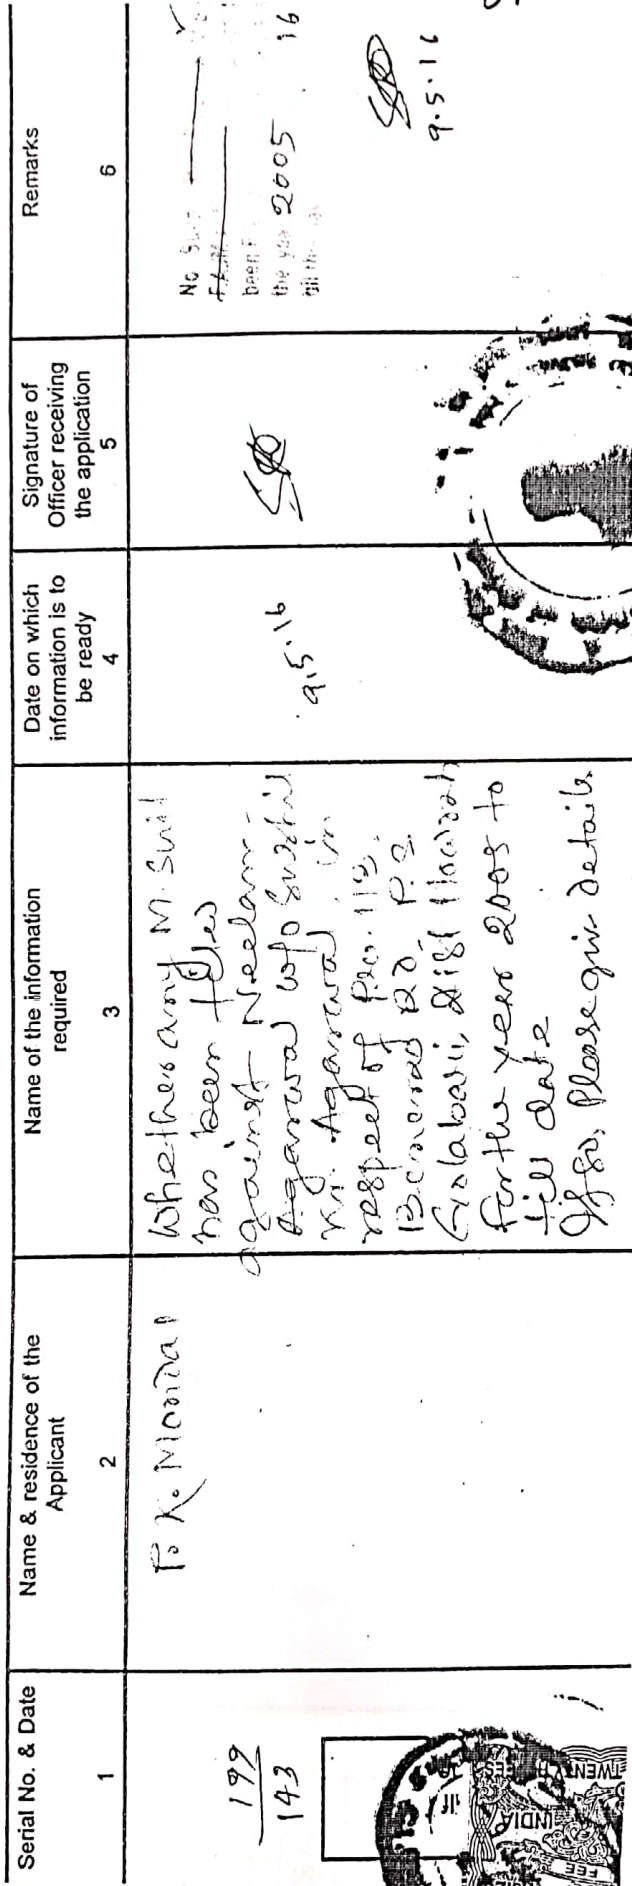 Serial No. & Date
Name & residence of the
Applicant
Name of the information
required
Date on which
information is to
be ready
Signature of
Officer receiving
the application
Remarks
1
2
3
4
5
6
199
143
P. K. Mondal
Whether any M. Suit
has been filed
against Neelam
Agarwal w/o Sushil
Kr. Agarwal, in
respect of Pre. 113,
Benaras Rd. P.S.
Golabari, Dist Howrah
for the year 2005 to
till date
If so, Please give details
9.5.16
No Suit
been
the year 2005
till the
16
9.5.16
INDIA
TWENTY RUPEES
FEE